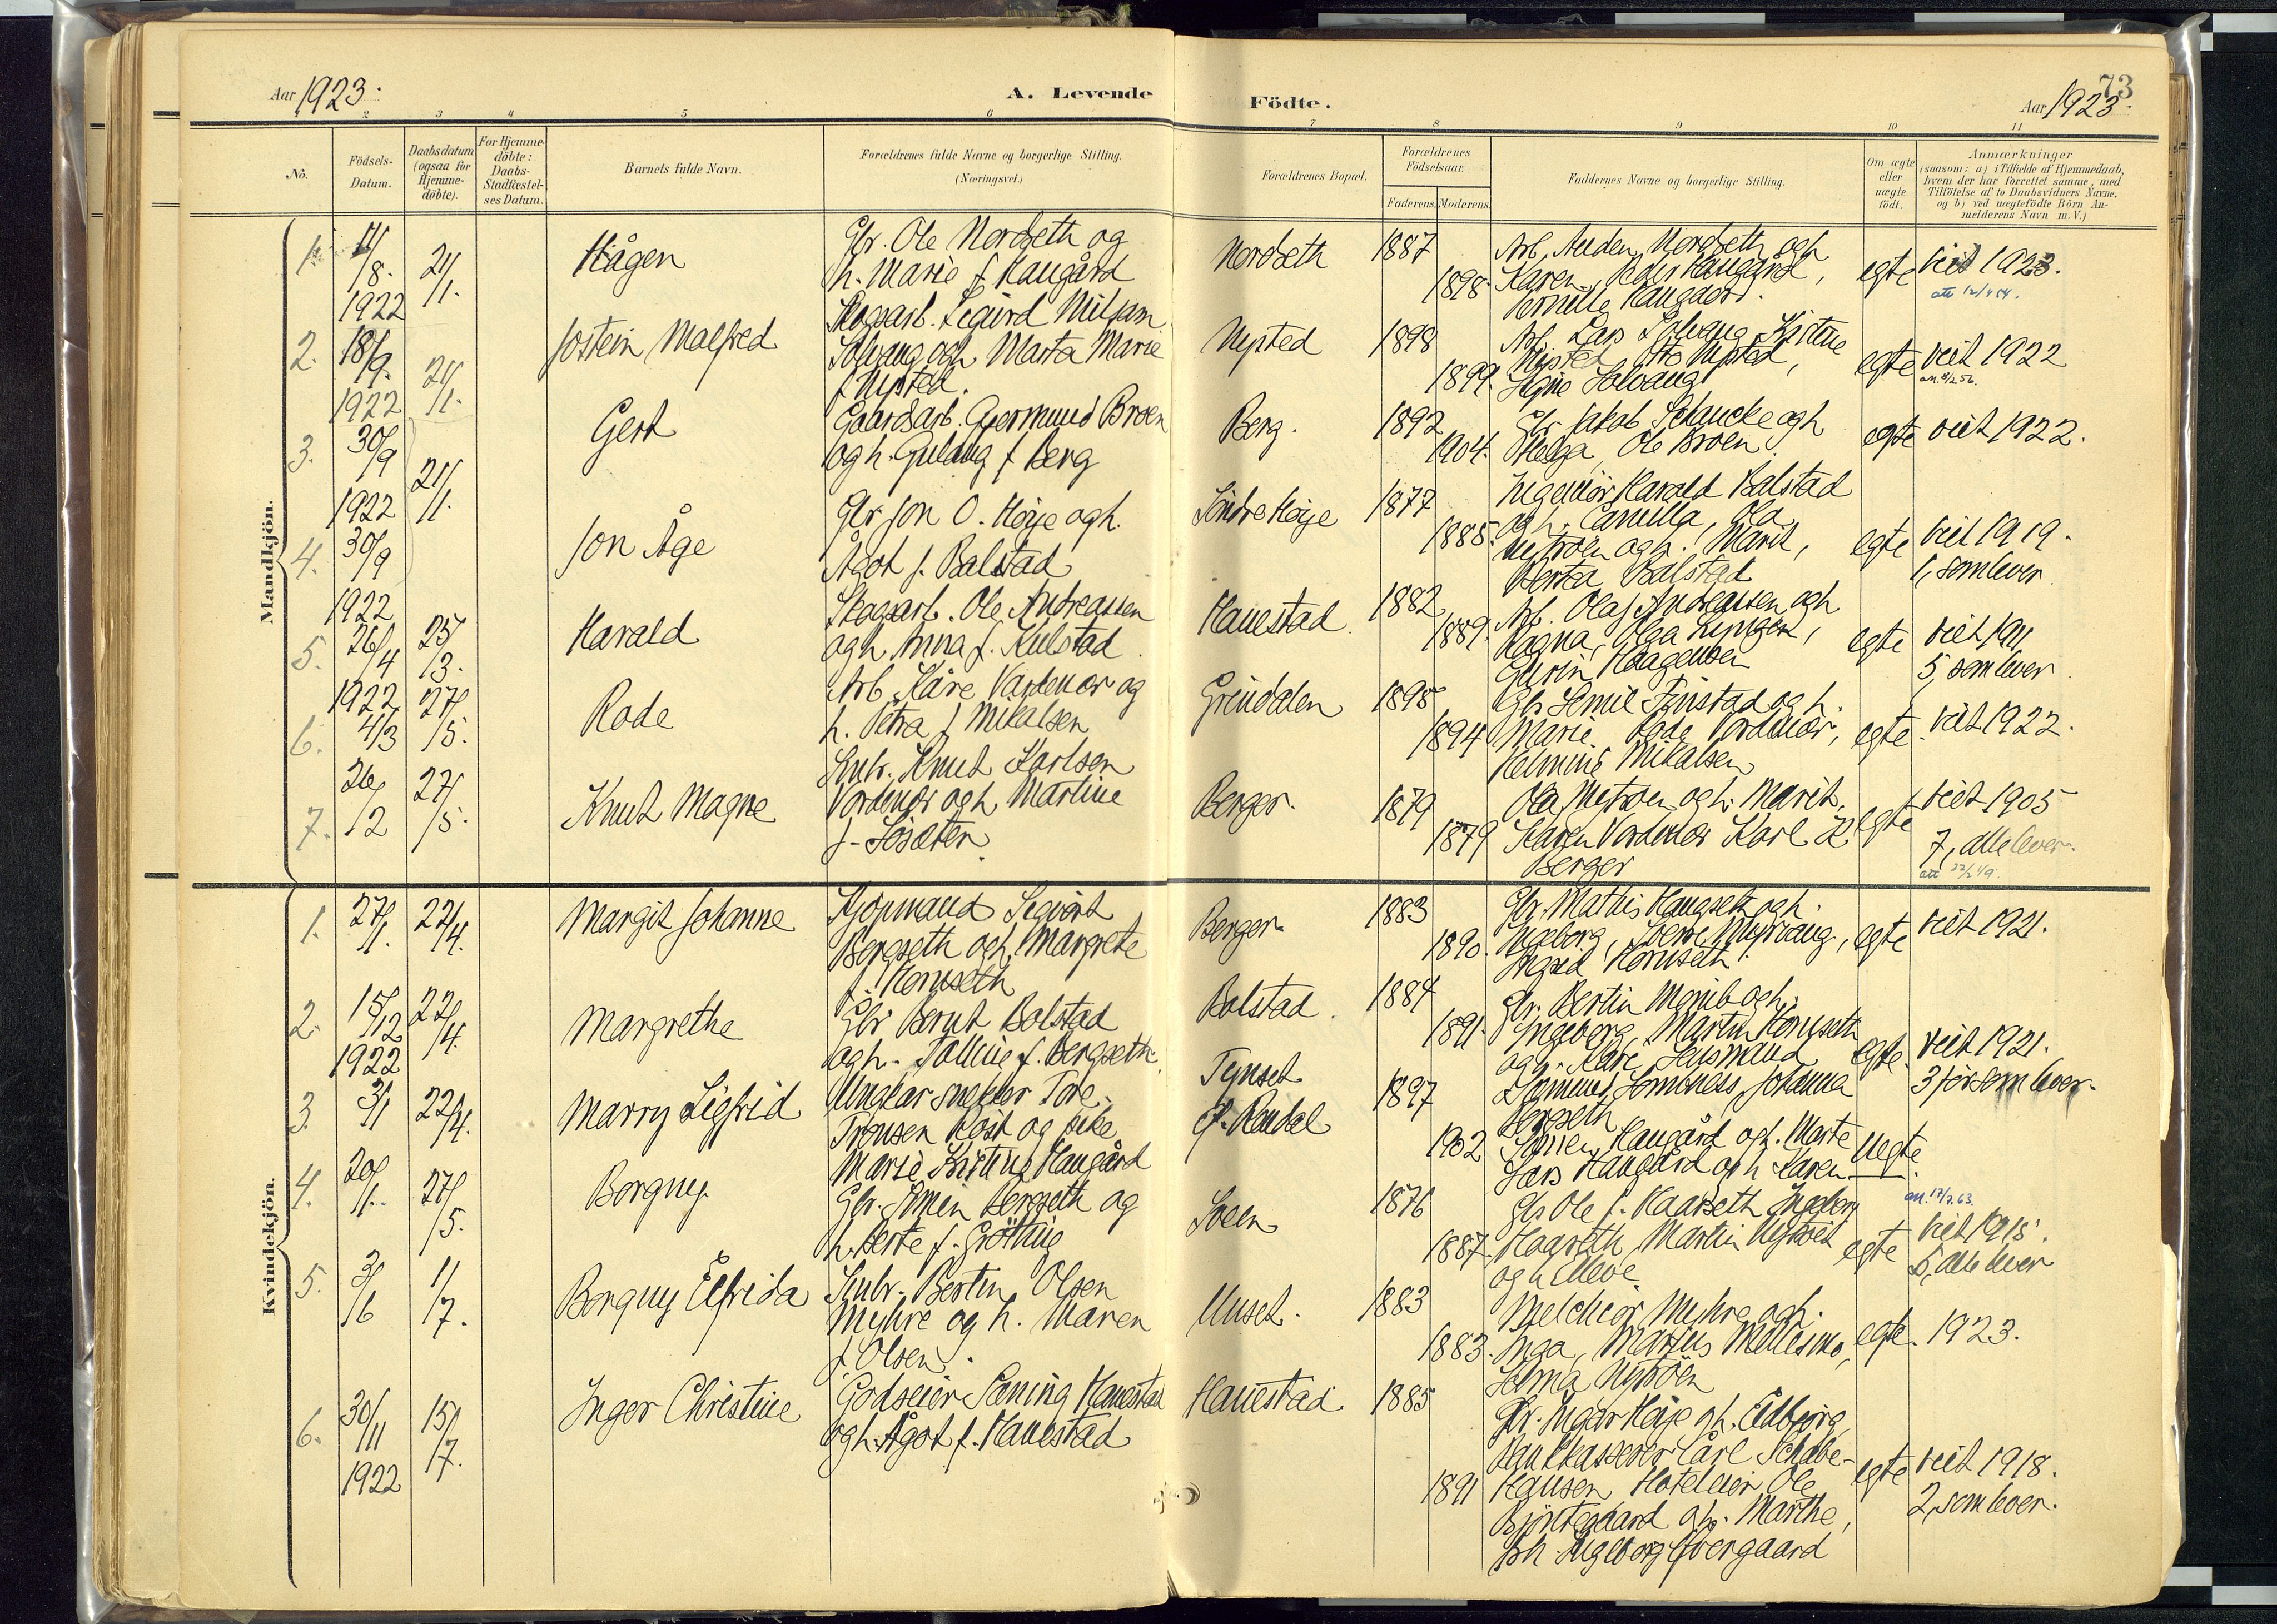 Aar 1923.
A. Levende
Födte.
73
Aar 1923.
1 2 3 4 5 6 7 8 9 10 11
No.
Födsels-
Datum.
Daabsdatum
(ogsaa for
Hjemme-
döbte).
For Hjemme-
döbte:
Daabs-
Stadfæstel-
ses Datum.
Barnets fulde Navn.
Forældrenes fulde Navne og borgerlige Stilling.
(Næringsvei.)
Forældrenes Bopæl.
Forældrenes
Födselsaar.
Faderens. Moderens.
Faddernes Navne og borgerlige Stilling.
Om ægte
eller
uægte
födt.
Anmærkninger
(saasom: a) i Tilfælde af Hjemmedaab,
hvem der har forrettet samme, med
Tilföielse af to Daabsvidners Navne,
og b) ved uægtefödte Börn An-
melderens Navn m. V.)
Mandkjön.
1. 11/8. 1922 21/1. Hågen
Gbr. Ole Nordseth og
h. Marie f. Haugård
Nordseth 1887 1898.
Arb. Auden Nordseth og h.
Karen, Peder Haugård,
Pernille Haugaard.
egte viet 1923.
2. 18/9. 1922 21/1. Jostein Malfred
Skogsarb. Sigurd Nilsam
Solvang og h. Marta Marie
f. Nysted.
Nysted 1898 1899.
Arb. Lars Solvang, Kristine
Nysted, Otto Nysted,
Signe Solvang
egte viet 1922
3. 30/9 1922 21/1. Gert
Gaardsarb. Gjermund Broen
og h. Gulaug f. Berg
Berg. 1892 1904.
Gbr. Jakob Schancke og h.
Helga, Ole Broen.
egte viet 1922.
4. 30/9 1922 Jon Åge
Gbr. Jon O. Höije og h.
Ågot f. Balstad
Söndre Höije 1877 1885.
Ingeniör Harald Balstad
og h. Camilla, Ola
Nytroen og h. Marit,
Berta Balstad
egte viet 1919.
1, som lever.
5. 26/4 25/3. Harald
Skogsarb. Ole Andreassen
og h. Anna f. Kulstad
Hanestad. 1882 1889.
Arb. Olaf Andreassen og h.
Ragna, Olga Lyngen,
Gurin Haagensen
egte viet 1911
5, som lever.
6. 1922 4/3 27/5. Rode
Arb. Kåre Vardenær og
h. Petra f. Mikalsen
Grindalen 1898 1894
Gbr. Semil Finstad og h.
Marie, Rode Vordenær,
Helmine Mikalsen
egte. viet 1922.
7. 26/12 27/5. Knut Magne
Snbr. Knut Karlsen
Vordenær og h. Martine
f. Sösæter.
Berger. 1879 1879
Ola Nytroen og h. Marit,
Karen Vordenær Karl K.
Berger
egte viet 1905
7, alle lever.
Kvindekjön.
1. 27/1. 22/4. Margit Johanne
Kjöpmand Sigvart
Bergseth og h. Margrete
f. Horneseth
Berger 1883 1890.
Gbr. Mathis Haugseth og h.
Ingeborg, Sverre Myrvang,
Ingrid Hornseth.
egte viet 1921.
2. 15/12 1922 22/4. Margrethe
Gbr. Bernt Bolstad
og h. Tolline f. Bergseth.
Bolstad. 1884 1891.
Gbr. Bertin Moseib og h.
Ingeborg, Martin Hornseth
og h. Kari, Lensmand
egte. viet 1921.
3 för som lever.
3. 3/1 22/4. Marry Sigfrid
Ungkar snekker Tore
Tronsen Röst og pike
Marie Kristine Haugård
Tynset
Y. Rendal 1897 1902
Bergseth
Simen Haugård og h. Marte
Lars Haugård og h. Karen
uegte
4. 20/1. 27/5. Borgny.
Gbr. Simen Bergseth og
h. Berte f. Grötting
Soen 1876 1887.
Gbr. Ole S. Haarseth Ingeborg
Haarseth Martin Nytroen
og h. Mene.
egte viet 1915.
5, alle lever
5. 3/6 1/7. Borgny Elfrida
Snbr. Bertin Olsen
Myhre og h. Maren
f. Olsen.
Unset. 1883 1883.
Melchior Myhre og h.
Inga, Marius Mellesmo,
Selma Nytröen
egte. 1923.
6. 30/11 1922 15/7. Inger Christine
Godseier Sæming Hanestad
og h. Ågot f. Hanestad
Hanestad. 1885 1891
Gbr. Ingar Höije og h. Edbjörg,
Bankkasserer Carl Schøbe-
Hansen Hoteleier Ole
Bjöntegaard og h. Marthe,
frk. Ingeborg Övergaard
egte viet 1918.
2, som lever.